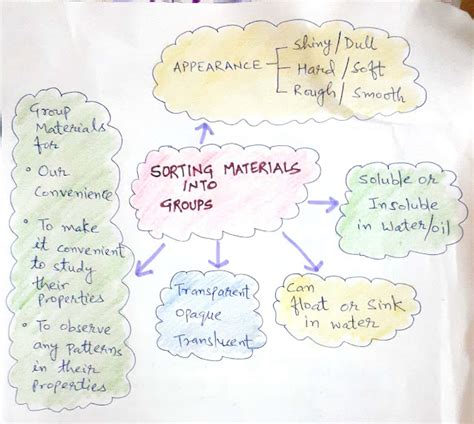 APPEARANCE
Shiny/Dull
Hard/Soft
Rough/Smooth
Group
Materials
for
• Our
Convenience
• To make
it convenient
to study
their
properties
• To observe
any patterns
in their
properties
SORTING MATERIALS
INTO
GROUPS
Soluble or
Insoluble
in water/oil
Transparent
Opaque
Translucent
Can
float or sink
in water